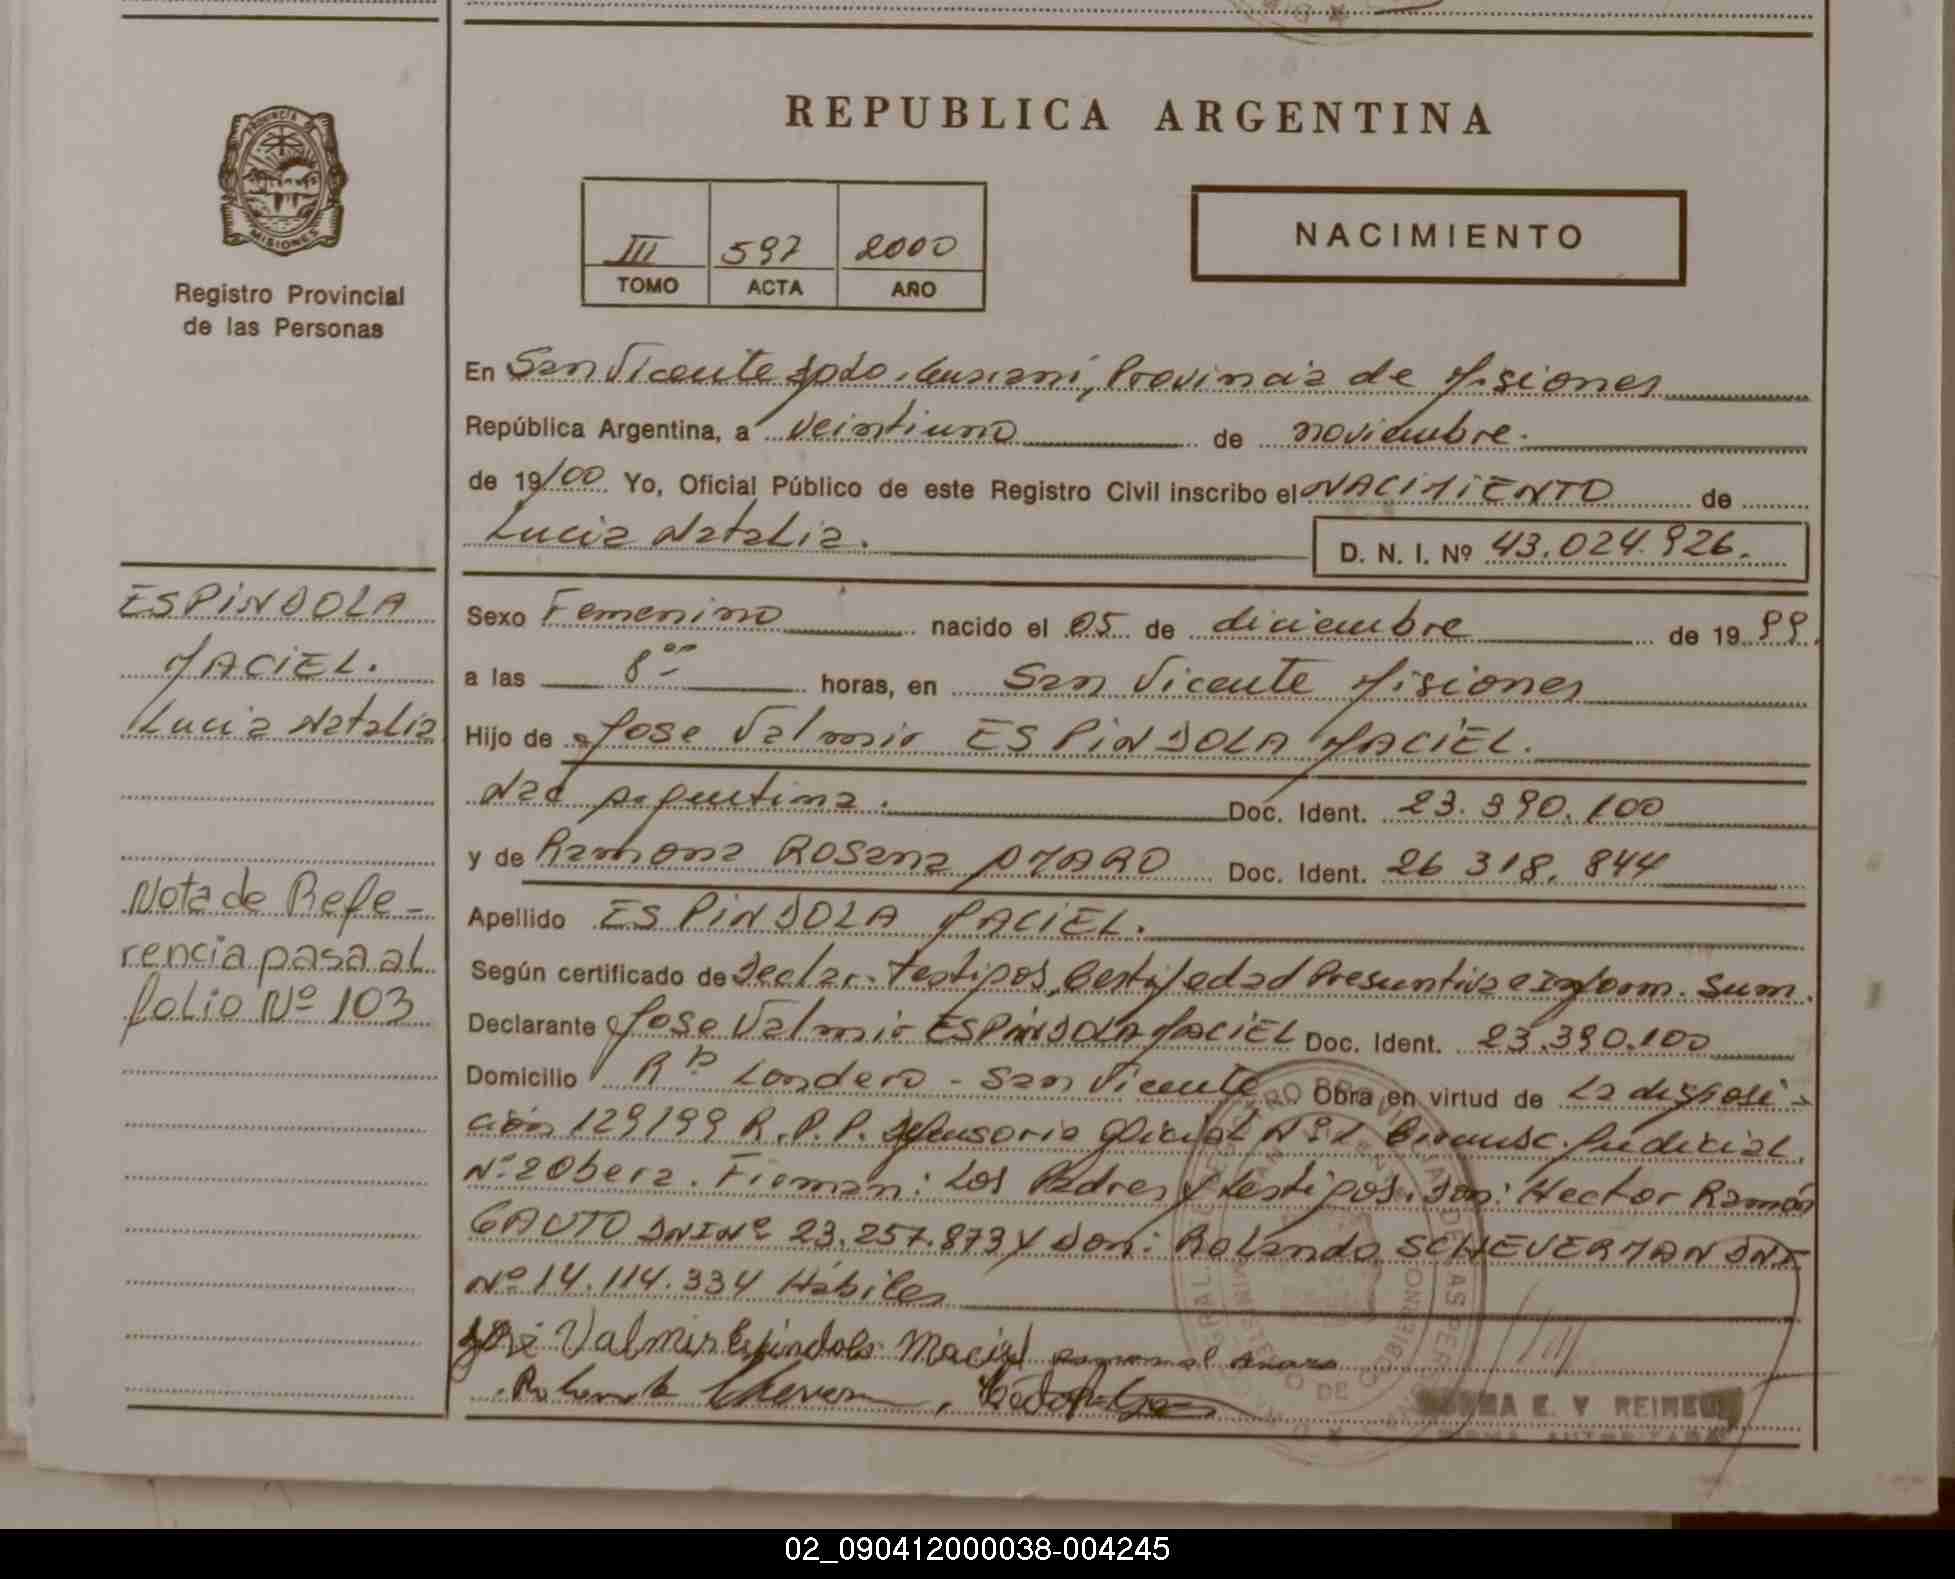 REPUBLICA ARGENTINA
PROVINCIA DE
MISIONES
Registro Provincial
de las Personas
III 597 2000
TOMO ACTA AÑO
NACIMIENTO
En San Vicente Dpto. Guaraní, Provincia de Misiones
República Argentina, a veintiuno de noviembre.
de 19/00 Yo, Oficial Público de este Registro Civil inscribo el NACIMIENTO de
Lucia Natalia.
D. N. I. Nº 43.024.926.
ESPINDOLA
MACIEL.
Lucia Natalia
Nota de Refe-
rencia pasa al
folio Nº 103
Sexo Femenino nacido el 05 de diciembre de 1999.
a las 8 00 horas, en San Vicente Misiones
Hijo de Jose Valmir ESPINDOLA MACIEL.
Nac Argentina. Doc. Ident. 23.390.100
y de Ramona Rosana AMARO Doc. Ident. 26 318. 844
Apellido ESPINDOLA MACIEL.
Según certificado de Declar. Testigos, Certif edad Presuntiva e Inform. Sum.
Declarante Jose Valmir ESPINDOLA MACIEL Doc. Ident. 23.390.100
Domicilio Londero - San Vicente Obra en virtud de La disposi-
ción 129/99 R.P.P. Defensoria Oficial Nº 1 Circunsc. Judicial
Nº 2 Obera. Firman: Los Padres y testigos. Don: Hector Ramón
GAUTO DNI Nº 23.257.873 y Don: Rolando SCHEVERMAN DNI
Nº 14.114.334 Hábiles
José Valmir Espindola Maciel Ramona Amaro
NORMA E. Y
02_090412000038-004245